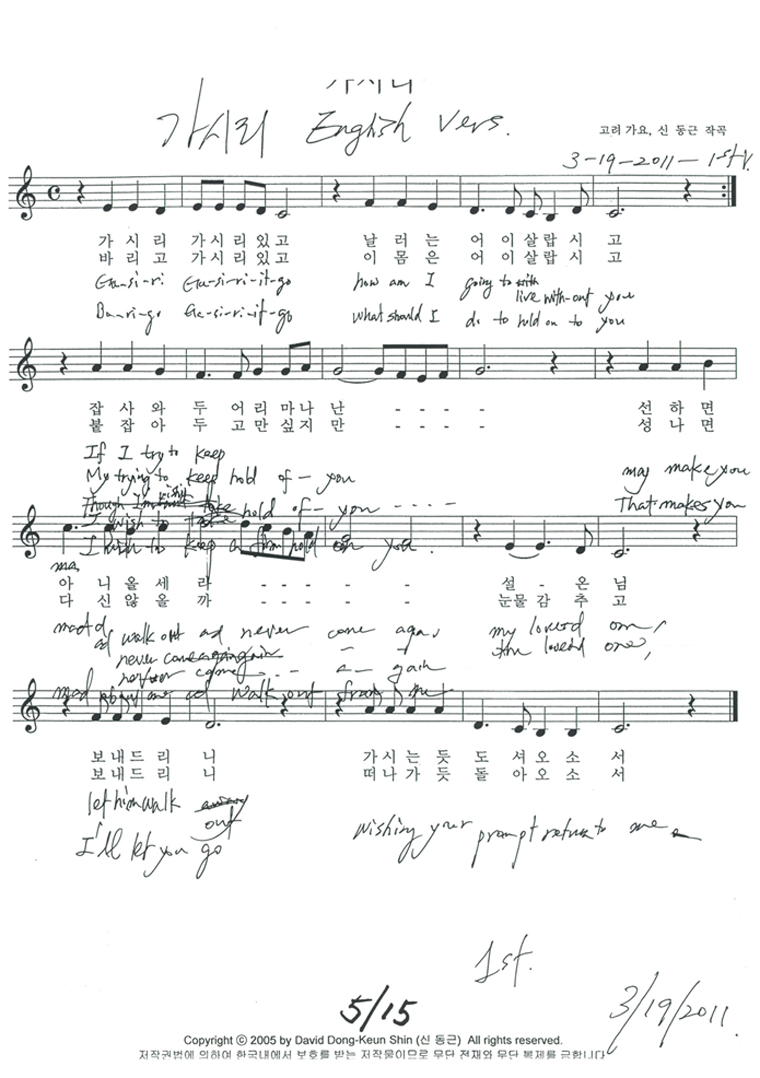 가시리
가시리 English Vers.
고려 가요, 신 동근 작곡
3-19-2011-1st V.
가 시 리 가 시 리 있 고 날 러 는 어 이 살 랍 시 고
바 리 고 가 시 리 있 고 이 몸 은 어 이 살 랍 시 고
Ga-si-ri Ga-si-ri-it-go how am I going to with
live with-out you
Ba-ri-go Ga-si-ri-it-go what should I do to hold on to you
잡 사 와 두 어 리 마 나 난 - - - - 선 하 면
붙 잡 아 두 고 만 싶 지 만 - - - - 성 나 면
If I try to keep
My trying to keep hold of - you may make you
Though I'm take hold of - you - - - - That makes you
I wish to take
I wish to keep a firm hold on you.
ma,
아 니 올 세 라 - - - - - 설 - 온 님
다 신 않 올 까 - - - - - 눈 물 감 추 고
mad
ad walk out ad never come aga, my loverd one,
never come again - - the loverd one,
never come - - - a - gain
mad ad walk out from me
보 내 드 리 니 가 시 는 듯 도 셔 오 소 서
보 내 드 리 니 떠 나 가 듯 돌 아 오 소 서
let him walk
out
I'll let you go wishing your prompt return to me
1st.
5/15 3/19/2011.
Copyright ⓒ 2005 by David Dong-Keun Shin (신 동근) All rights reserved.
저작권법에 의하여 한국내에서 보호를 받는 저작물이므로 무단 전재와 무단 복제를 금합니다